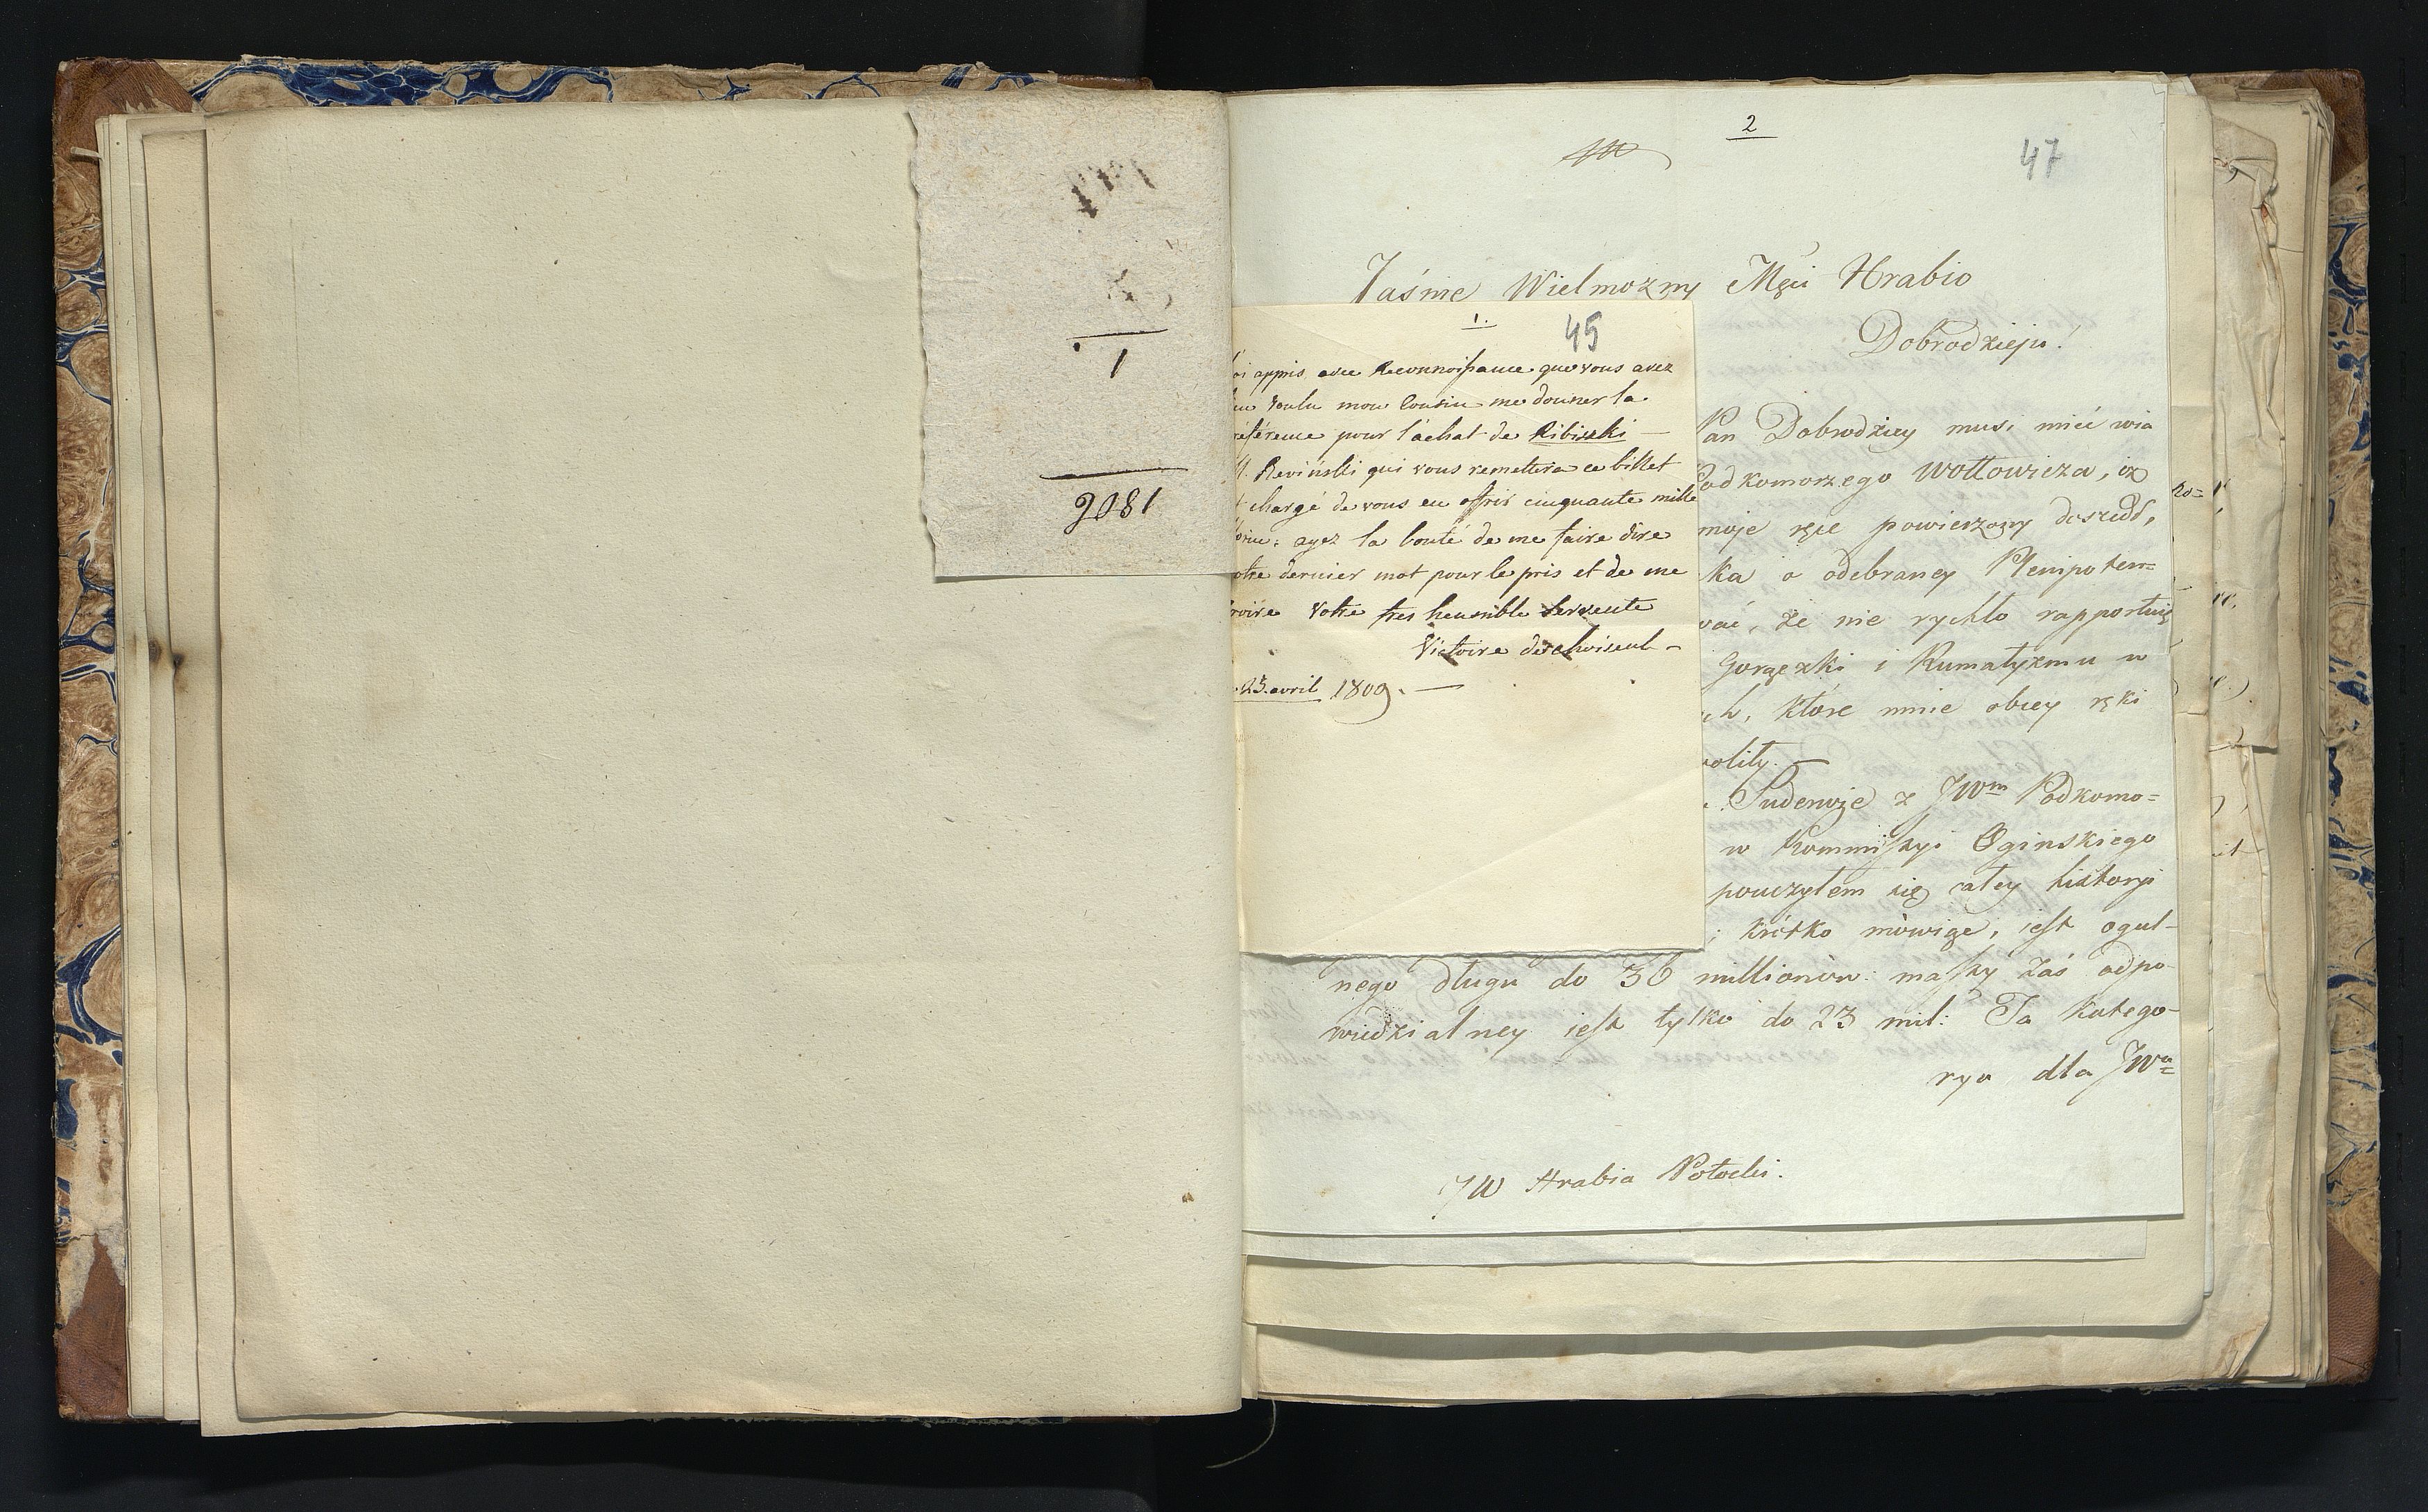 1
2081
2
47
Jaśnie Wielmożny Mści Hrabio
Dobrodzieju!
1.
45
ai appris avec Reconnoissance que vous avez
voulu mon Cousin me donner la
référence pour l'achat de Ribiszki —
Reviński qui vous remettra ce billet
chargé de vous en offrir cinquante mille
ayez la bonté de me faire dire
otre dernier mot pour le pris et de me
roire Votre tres heumble servente
Victoire de choiseul –
23. avril 1809. —
Pan Dobrodziey musi mieć wia
Podkomorzego Wołłowicza, iż
moje ręce powierzony doszedł,
ka o odebraney Plenipoten=
wać, że nie rychło rapportuię
Gorączki i Rumatyzmu w
ch, które mnie obiey ręki
olity. —
Suderwie z JWm Podkomo=
w Kommissyi Oginskiego
pouczyłem się całey historyi
krótko mówiąc, iest ogul-
nego długu do 36 millionów: massy zaś odpo-
wiedzialney iest tylko do 23 mil: Ta katego-
rya dla JW
JW Hrabia Potocki.